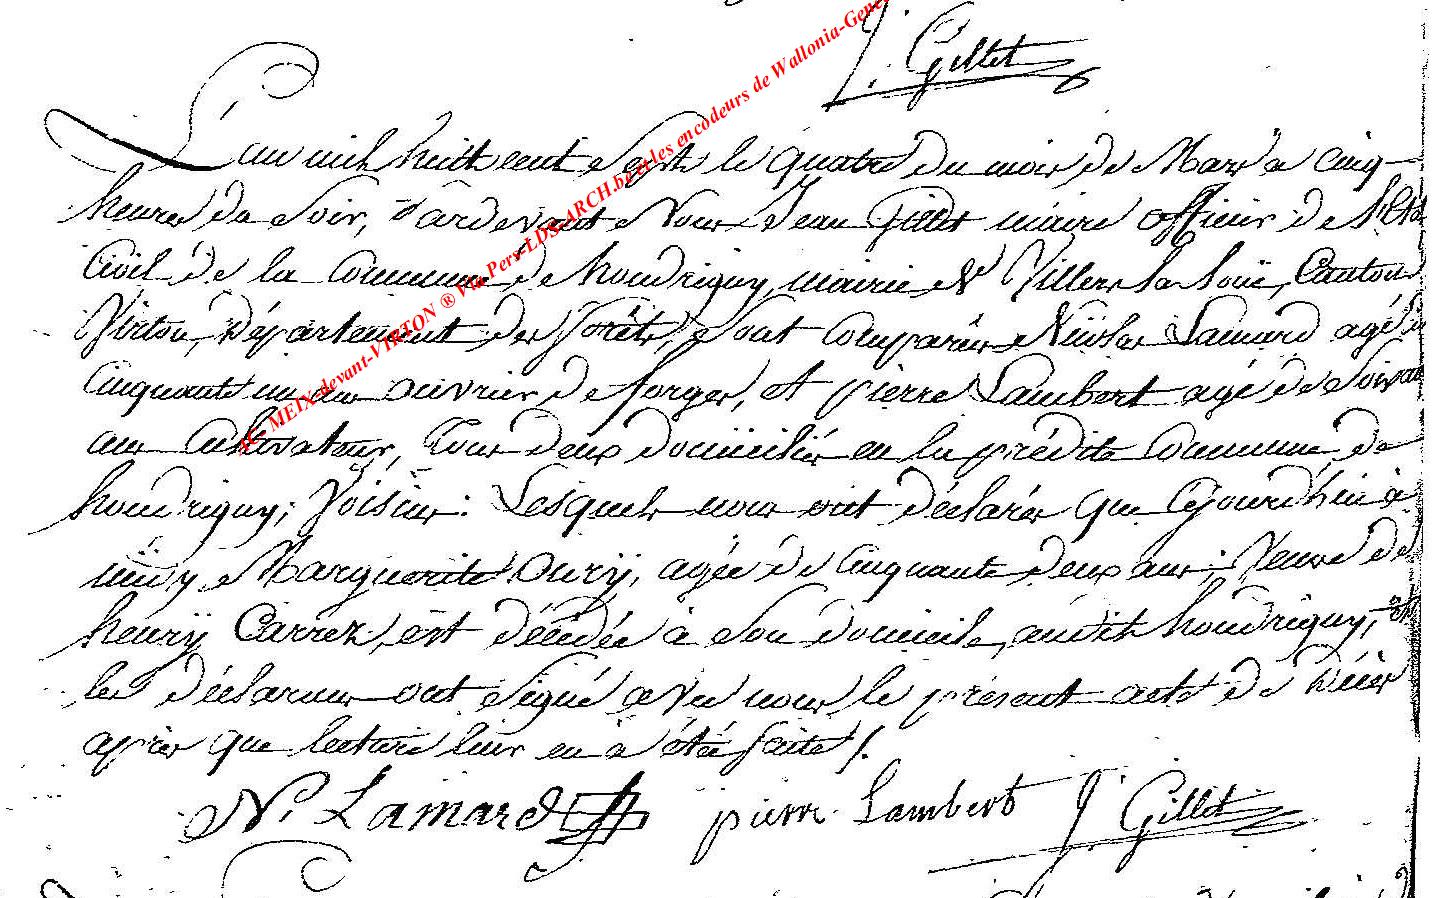 J. Gillet
L'an mil huit cent sept le quatre du mois de Mars à cinq
heures de Soir, Pardevant Nous Jean Gillet maire officier de l'Etat
Civil de la Commune de houdrigny, mairie de Villers la loüe, Canton
Virton, Département des forêts, Sont Comparus Nicolas Lamard agé de
cinquante un ans ouvrier de forges, et pierre Lambert agé de Soixante
ans Cultivateur, Tous deux domiciliés en la prédite Commune de
houdrigny; Voisins: Lesquels nous ont déclarés que Cejourd'hui à
midy Marguerite Oury, agée de Cinquante deux ans; Veuve de
henry Carrez, est décédée à Son domicile, audit houdrigny, et
les déclarans ont Signé avec nous le présent acte de décès
après que lecture leur en à été faite /.
N. Lamard pierre Lambert J. Gillet
AC MEIX-devant-VIRTON ® Via Pers-LDS-ARCH.be et les encodeurs de Wallonia-Gene